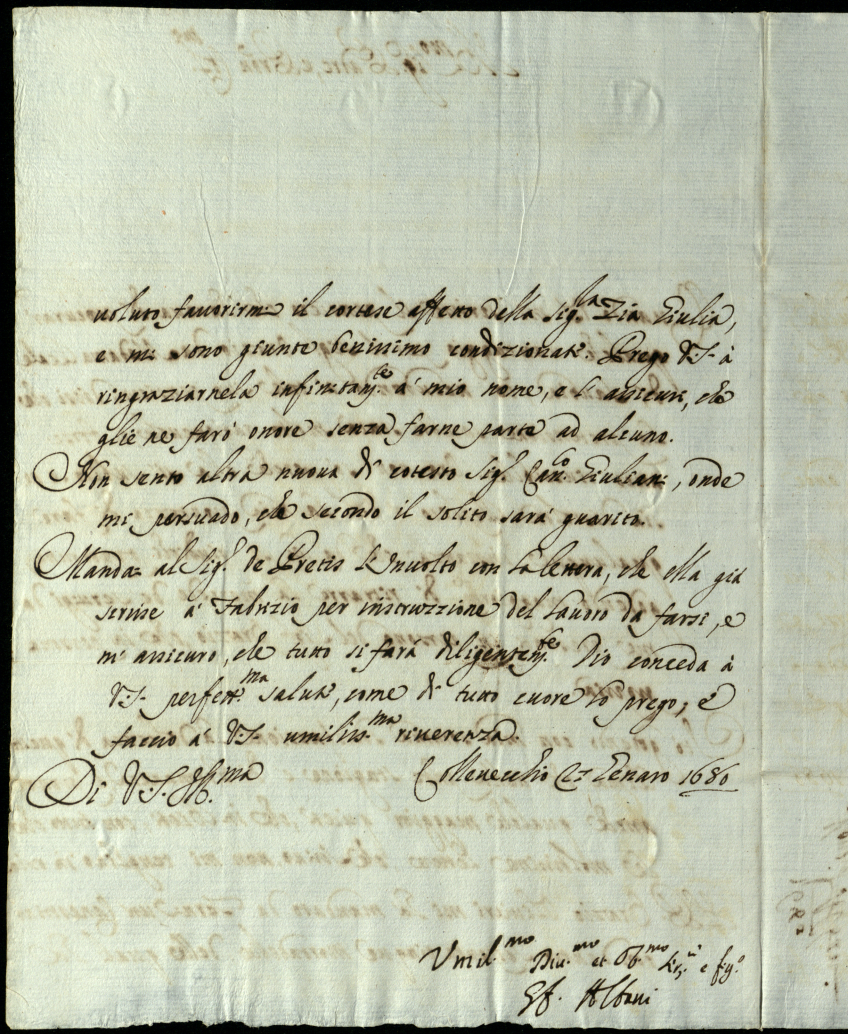 uoluto fauorirmi il cortese affetto della Sig.ra Zia Giulia,
e mi sono giunte benissimo condizionate. Prego V.S. à
ringraziarnela infinitam.te à mio nome, e l'assicuri, che
glie ne farò onore senza farne parte ad alcuno.
Non sento altra nuova di cotesto Sig.r Can.co Giuliani, onde
mi persuado, che secondo il solito sarà guarito.
Mandai al Sig.r de Pretis l'Inuolto con la lettera, che ella già
scrisse à Fabrizio per instruzzione del lauoro da farsi, e
m'assicuro, che tutto si farà diligentem.te. Dio conceda à
V.S. perfett.ma salute, come di tutto cuore lo prego, e
faccio à V.S. umiliss.ma riuerenza.
Di V.S. Ill.ma Colleuecchio Genaro 1680
Umil.mo Diu.mo et Ob.mo e fig.o
Albani